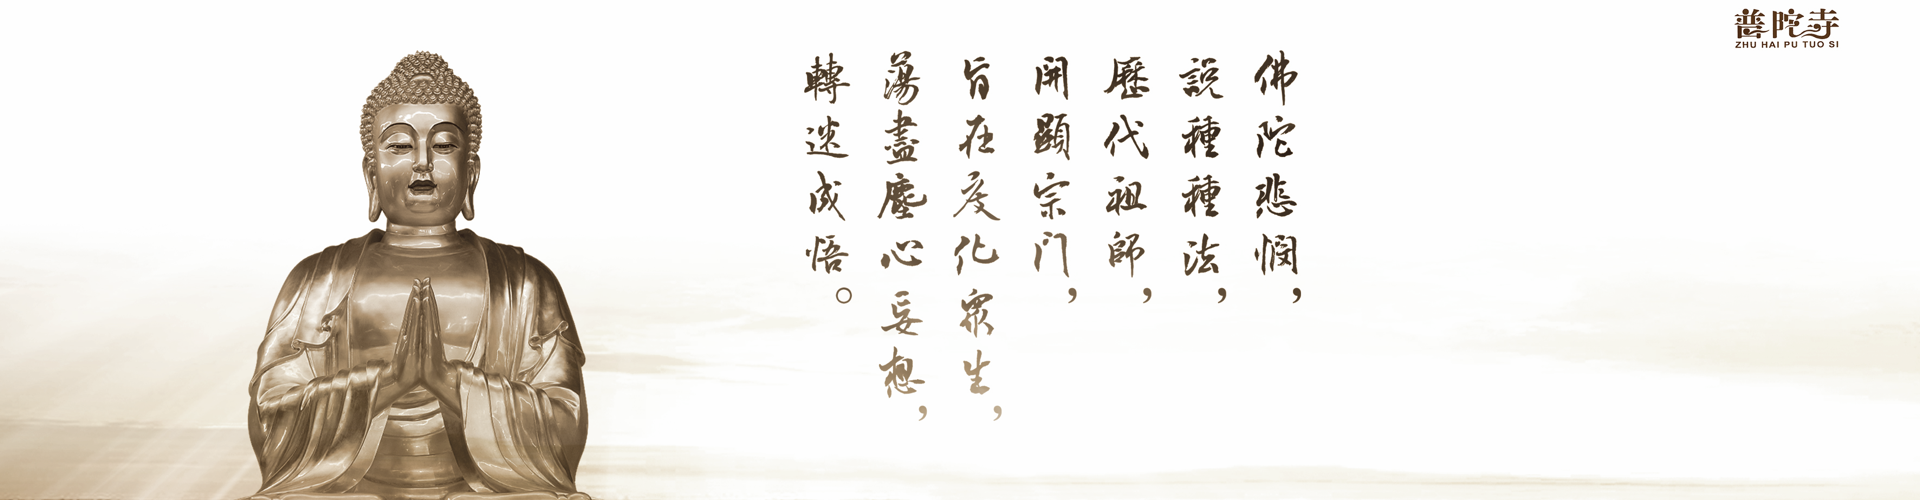 佛陀悲憫，
說種種法，
歷代祖師，
開顯宗門，
旨在度化眾生，
蕩盡塵心妄想，
轉迷成悟。
普陀寺
ZHU HAI PU TUO SI